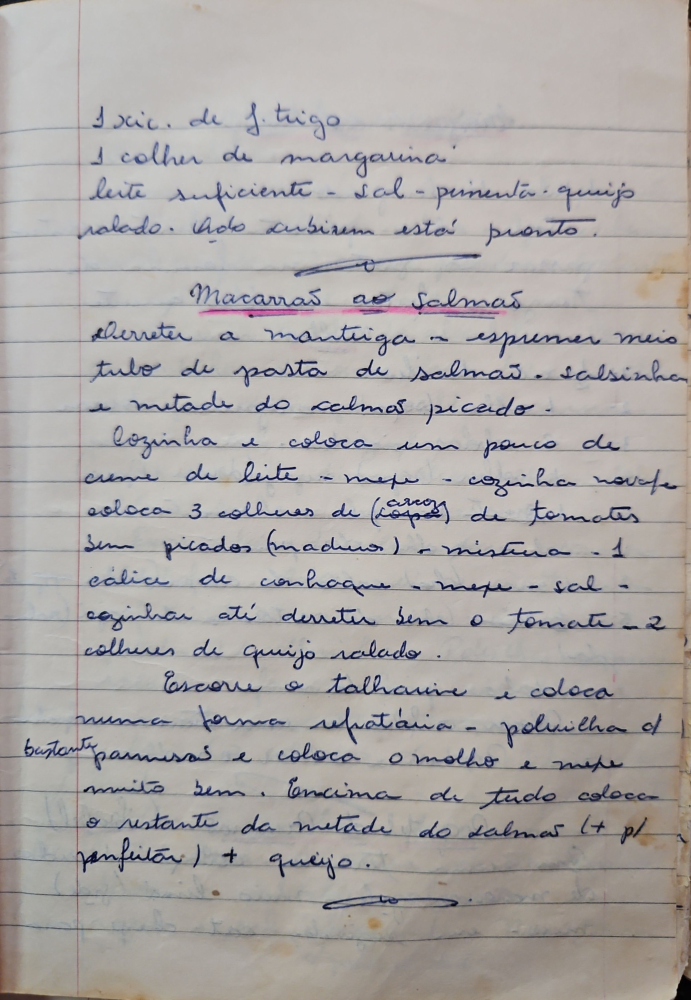 1 xic. de f. trigo
1 colher de margarina
leite suficiente - sal - pimenta - queijo
ralado. Qdo subirem está pronto.
Macarrão ao Salmão
Derreter a manteiga - espremer meio
tubo de pasta de salmão. Salsinha
e metade do salmão picado.
Cozinha e coloca um pouco de
creme de leite - mexe - cozinha
coloca 3 colheres de (sopa) de tomates
bem picados (maduros) - mistura - 1
cálice de conhaque - mexe - sal -
cozinhar até derreter bem o tomate - 2
colheres de queijo ralado.
Escorre o talharine e coloca
numa forma refratária - polvilha c/
bastante parmesão e coloca o molho e mexe
muito bem. Encima de tudo coloca
o restante da metade do salmão (+ p/
enfeitar) + queijo.